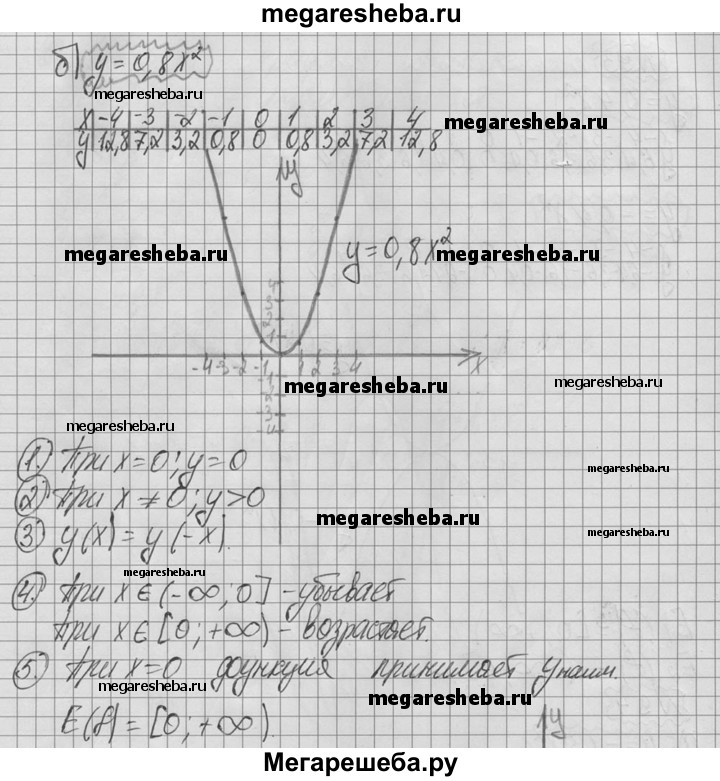 megaresheba.ru
б) y = 0,8x²
megaresheba.ru
x | -4 | -3 | -2 | -1 | 0 | 1 | 2 | 3 | 4
y | 12,8 | 7,2 | 3,2 | 0,8 | 0 | 0,8 | 3,2 | 7,2 | 12,8
megaresheba.ru
y
megaresheba.ru
y = 0,8x²
megaresheba.ru
1
-4 -3 -2 -1 1 2 3 4 x
megaresheba.ru
megaresheba.ru
megaresheba.ru
1. При x = 0; y = 0
megaresheba.ru
2. При x ≠ 0; y > 0
megaresheba.ru
3. y(x) = y(-x).
megaresheba.ru
megaresheba.ru
4. При x ∈ (-∞; 0] - убывает
При x ∈ [0; +∞) - возрастает.
5. При x = 0 функция принимает yнаим.
megaresheba.ru
megaresheba.ru
E(f) = [0; +∞).
y
Мегарешеба.ру